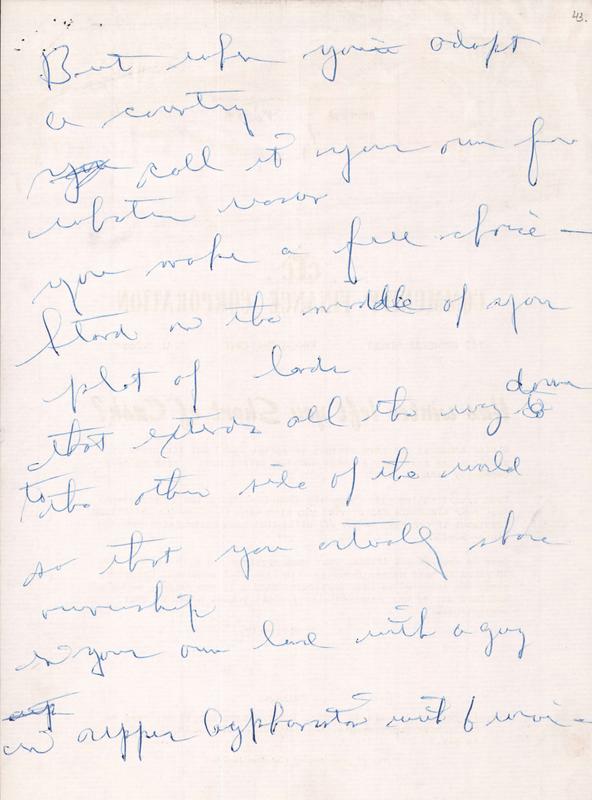 43.
But when you adopt
a country
you call it your own for
whatever reason
you make a free choice —
Stand in the middle of your
plot of land
that extends all the way down
to the other side of the world
so that you actually share
ownership
in your own land with a guy
in upper Afghanistan with 6 wives —